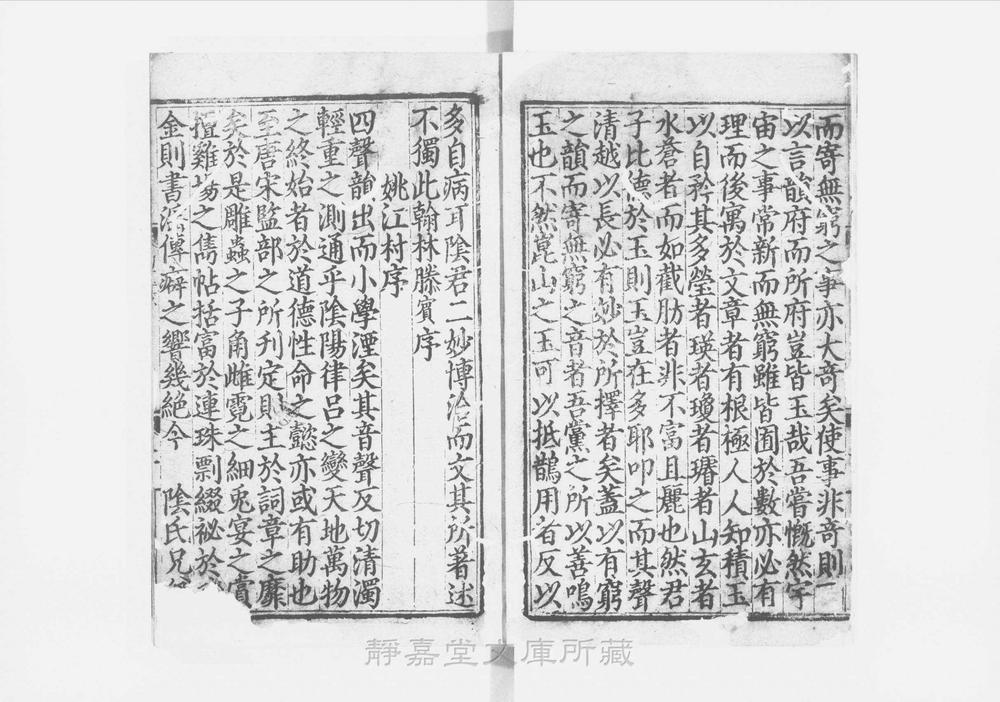 而寄無窮之事亦大奇矣使事非奇則
以言韻府而所府豈皆玉哉吾嘗慨然宇
宙之事常新而無窮雖皆囿於數亦必有
理而後寓於文章者有根極人人知積玉
以自矜其多瑩者瑛者瓊者璿者山玄者
水蒼者而如截肪者非不富且麗也然君
子比德於玉則玉豈在多耶叩之而其聲
清越以長必有妙於所擇者矣蓋以有窮
之韻而寄無窮之音者吾黨之所以善鳴
玉也不然崑山之玉可以抵鵲用者反以
多自病耳陰君二妙博洽而文其所著述
不獨此翰林滕賓序
姚江村序
四聲韻出而小學湮矣其音聲反切清濁
輕重之測通乎陰陽律呂之變天地萬物
之終始者於道德性命之懿亦或有助也
至唐宋監部之所刋定則主於詞章之靡
矣於是雕蟲之子角雌霓之細兎宴之賞
擅雞場之雋帖括富於連珠剽綴祕於
金則書滛傳癖之響幾絕今 陰氏兄
靜嘉堂文庫所藏